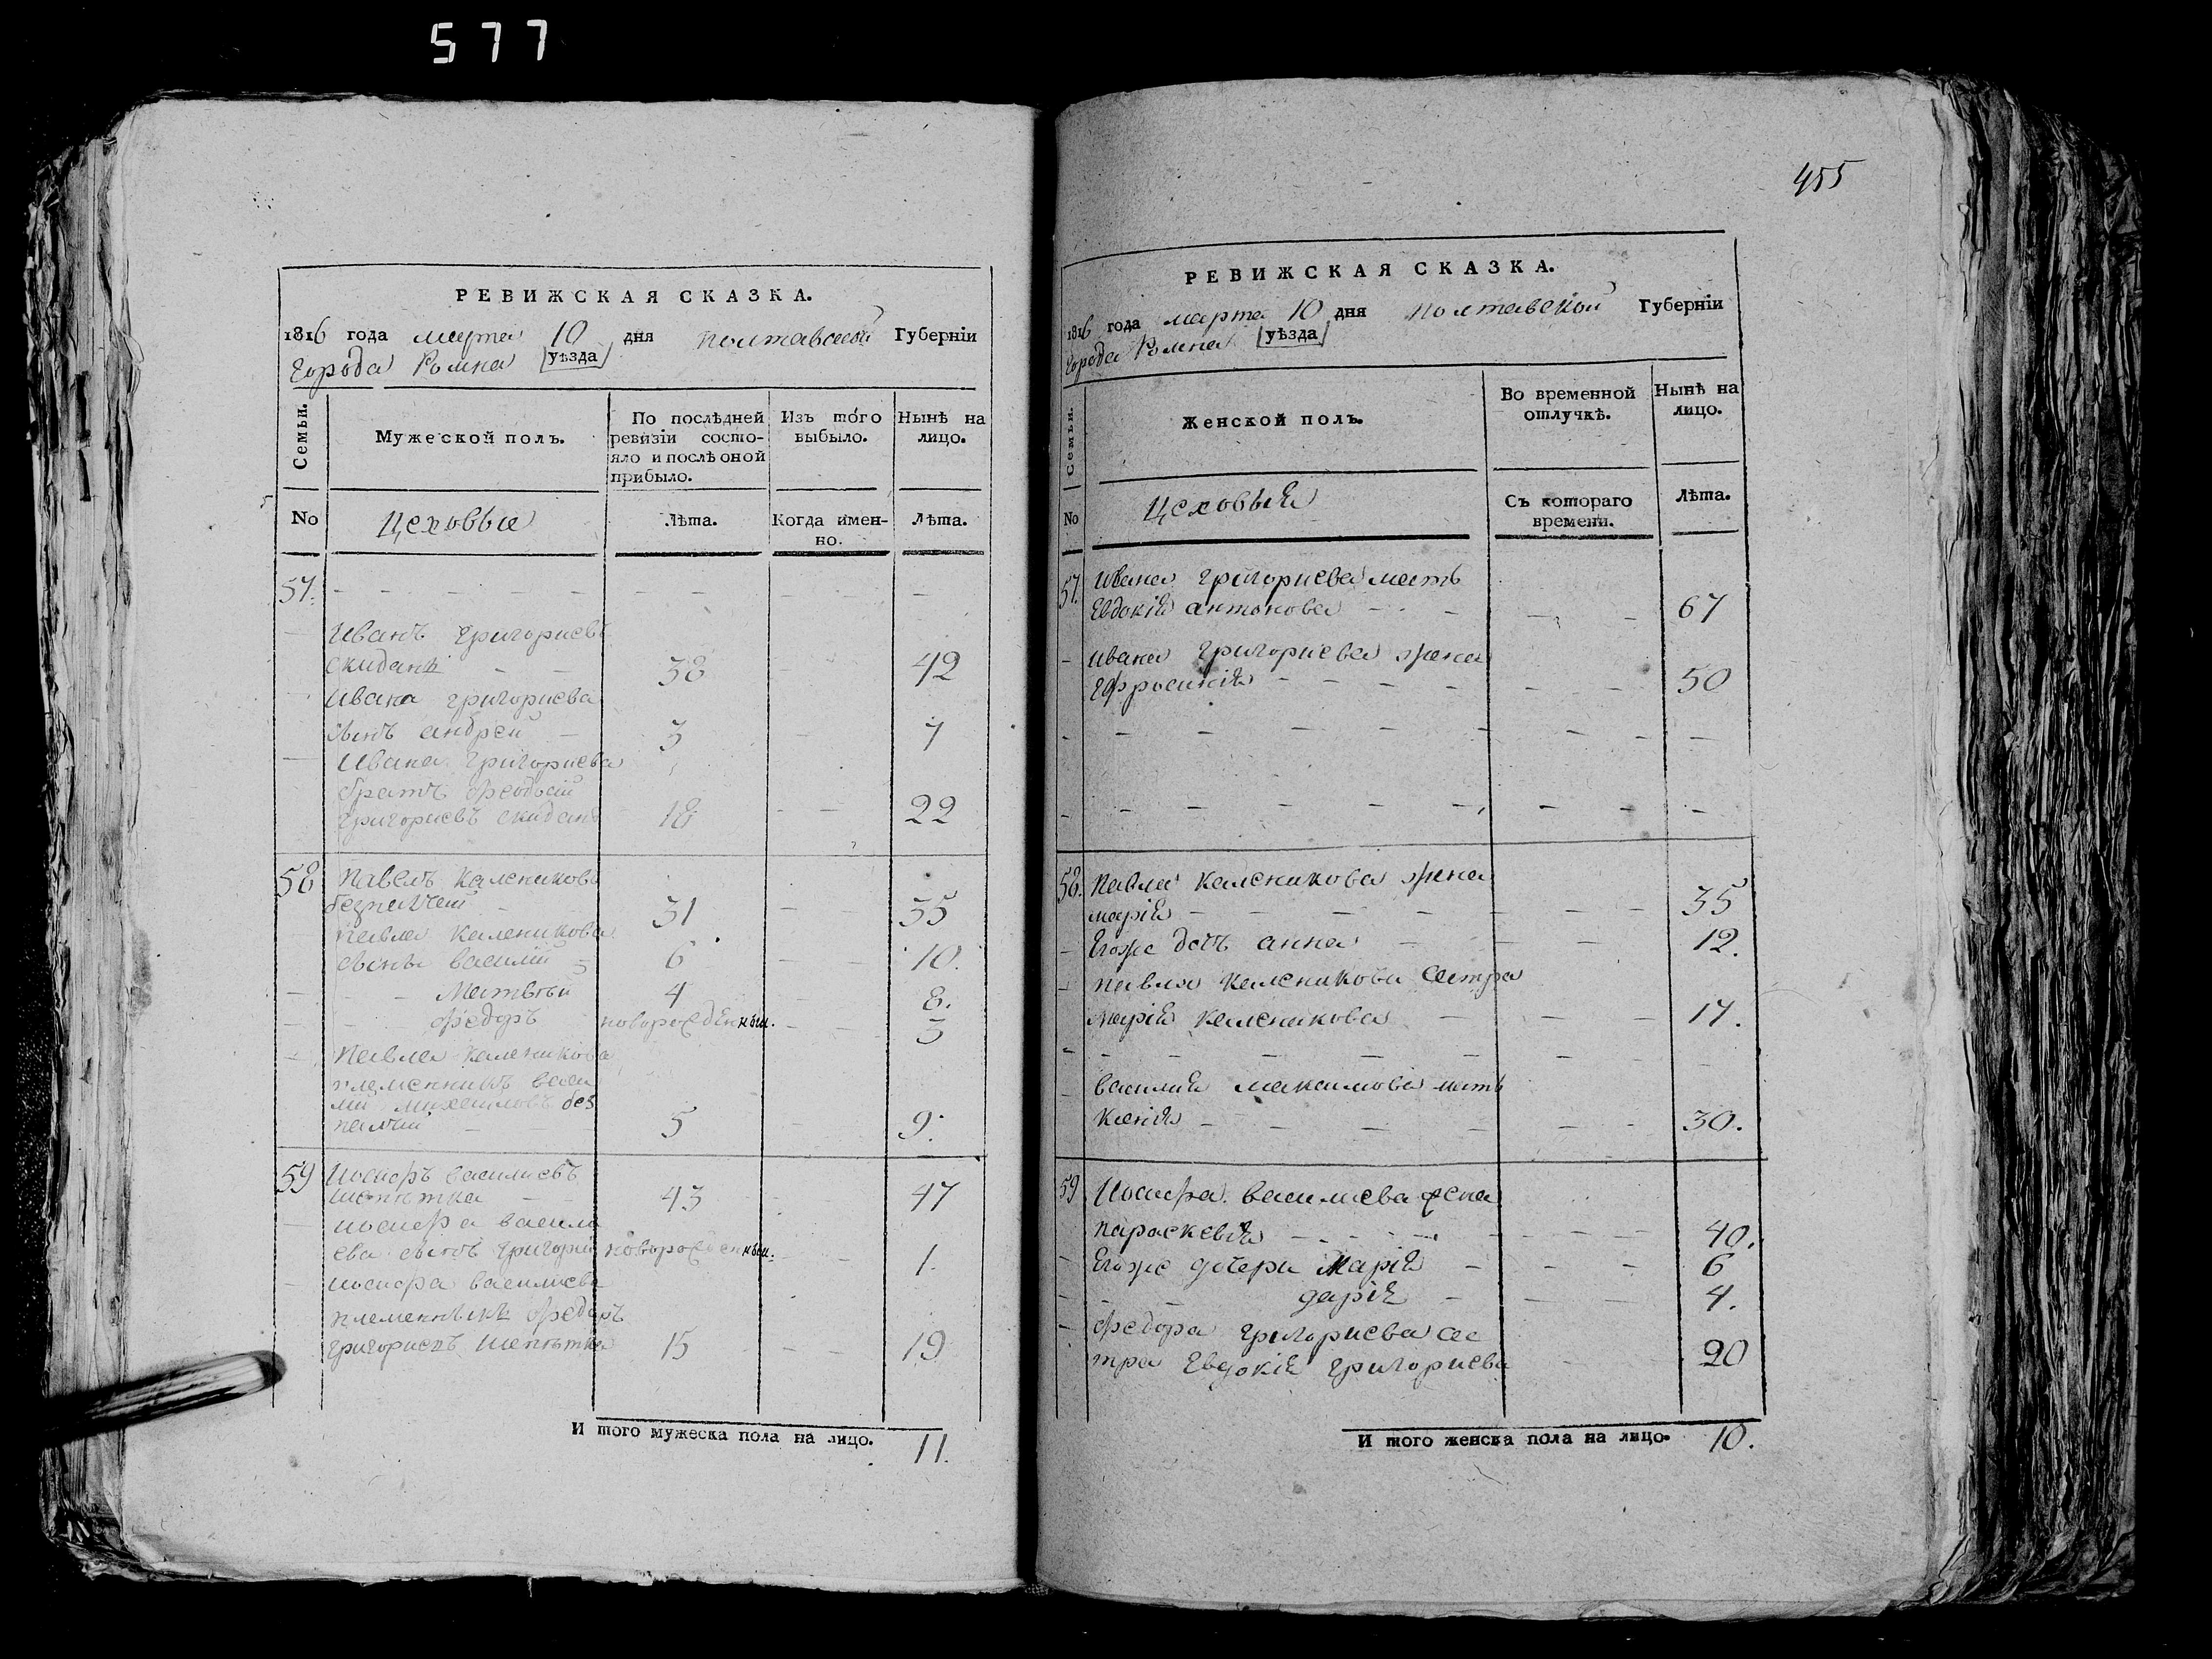 577
РЕВИЖСКАЯ СКАЗКА.
1816 года марта 10 дня Полтавской Губерніи
города Ромна [уѣзда]
Семьи.
Мужеской полъ.
По послѣдней ревизіи состо-
яло и послѣ оной прибыло.
Изъ того выбыло.
Нынѣ на лицо.
No
Цеховые
Лѣта.
Когда имен-
но.
Лѣта.
57. - - - - - - - - - -
Иванъ Григориевъ
скиданъ - - 38 42
Ивана григориева
сынъ андрей - 3 7
Ивана Григориева
братъ
григориевъ скиданъ 18 - - 22
58 Павелъ Калениковъ
безпалчий - 31 - - 35
павла каленикова
сыны василий - 6 - - 10.
- - - Матвей 4 8.
- - федоръ новорожденный. - - 3
- Павла каленикова
племенникъ васи
лий михайловъ без
палчий - - 5 9.
59 Иосифъ василиевъ
43 - 47
- иосифа васили
ева сынъ григорий новорожденный. - - 1.
- иосифа василиева
племенникъ федоръ
григориевъ 15 - - 19
И того мужеска пола на лицо. 11.
455
РЕВИЖСКАЯ СКАЗКА.
1816 года марта 10 дня Полтавской Губерніи
города Ромна [уѣзда]
Семьи.
Женской полъ.
Во временной отлучкѣ.
Нынѣ на лицо.
No
Цеховыя
Съ котораго времени.
Лѣта.
57. Ивана григориева мать
Евдокия антонова - - - - - 67
- ивана григориева жена
Ефросиния - - - - - - 50
- - - - - - - - -
- - - - - - - - -
58. Павла Каленикова жена
мария - - - - - - - 35
- Егожъ дочъ анна - - - 12.
- павла каленикова сестра
Мария каленикова - - - 17.
- - - - - - - -
- василия максимова мать
- - - - - - 30.
59 Иосифа василиева жена
параскевия - - - - - - - 40.
- Егоже дочери Мария - - - 6
- - - дария - - - 4.
- федора григориева сес
тра Евдокия григориева - 20
И того женска пола на лицо. 10.